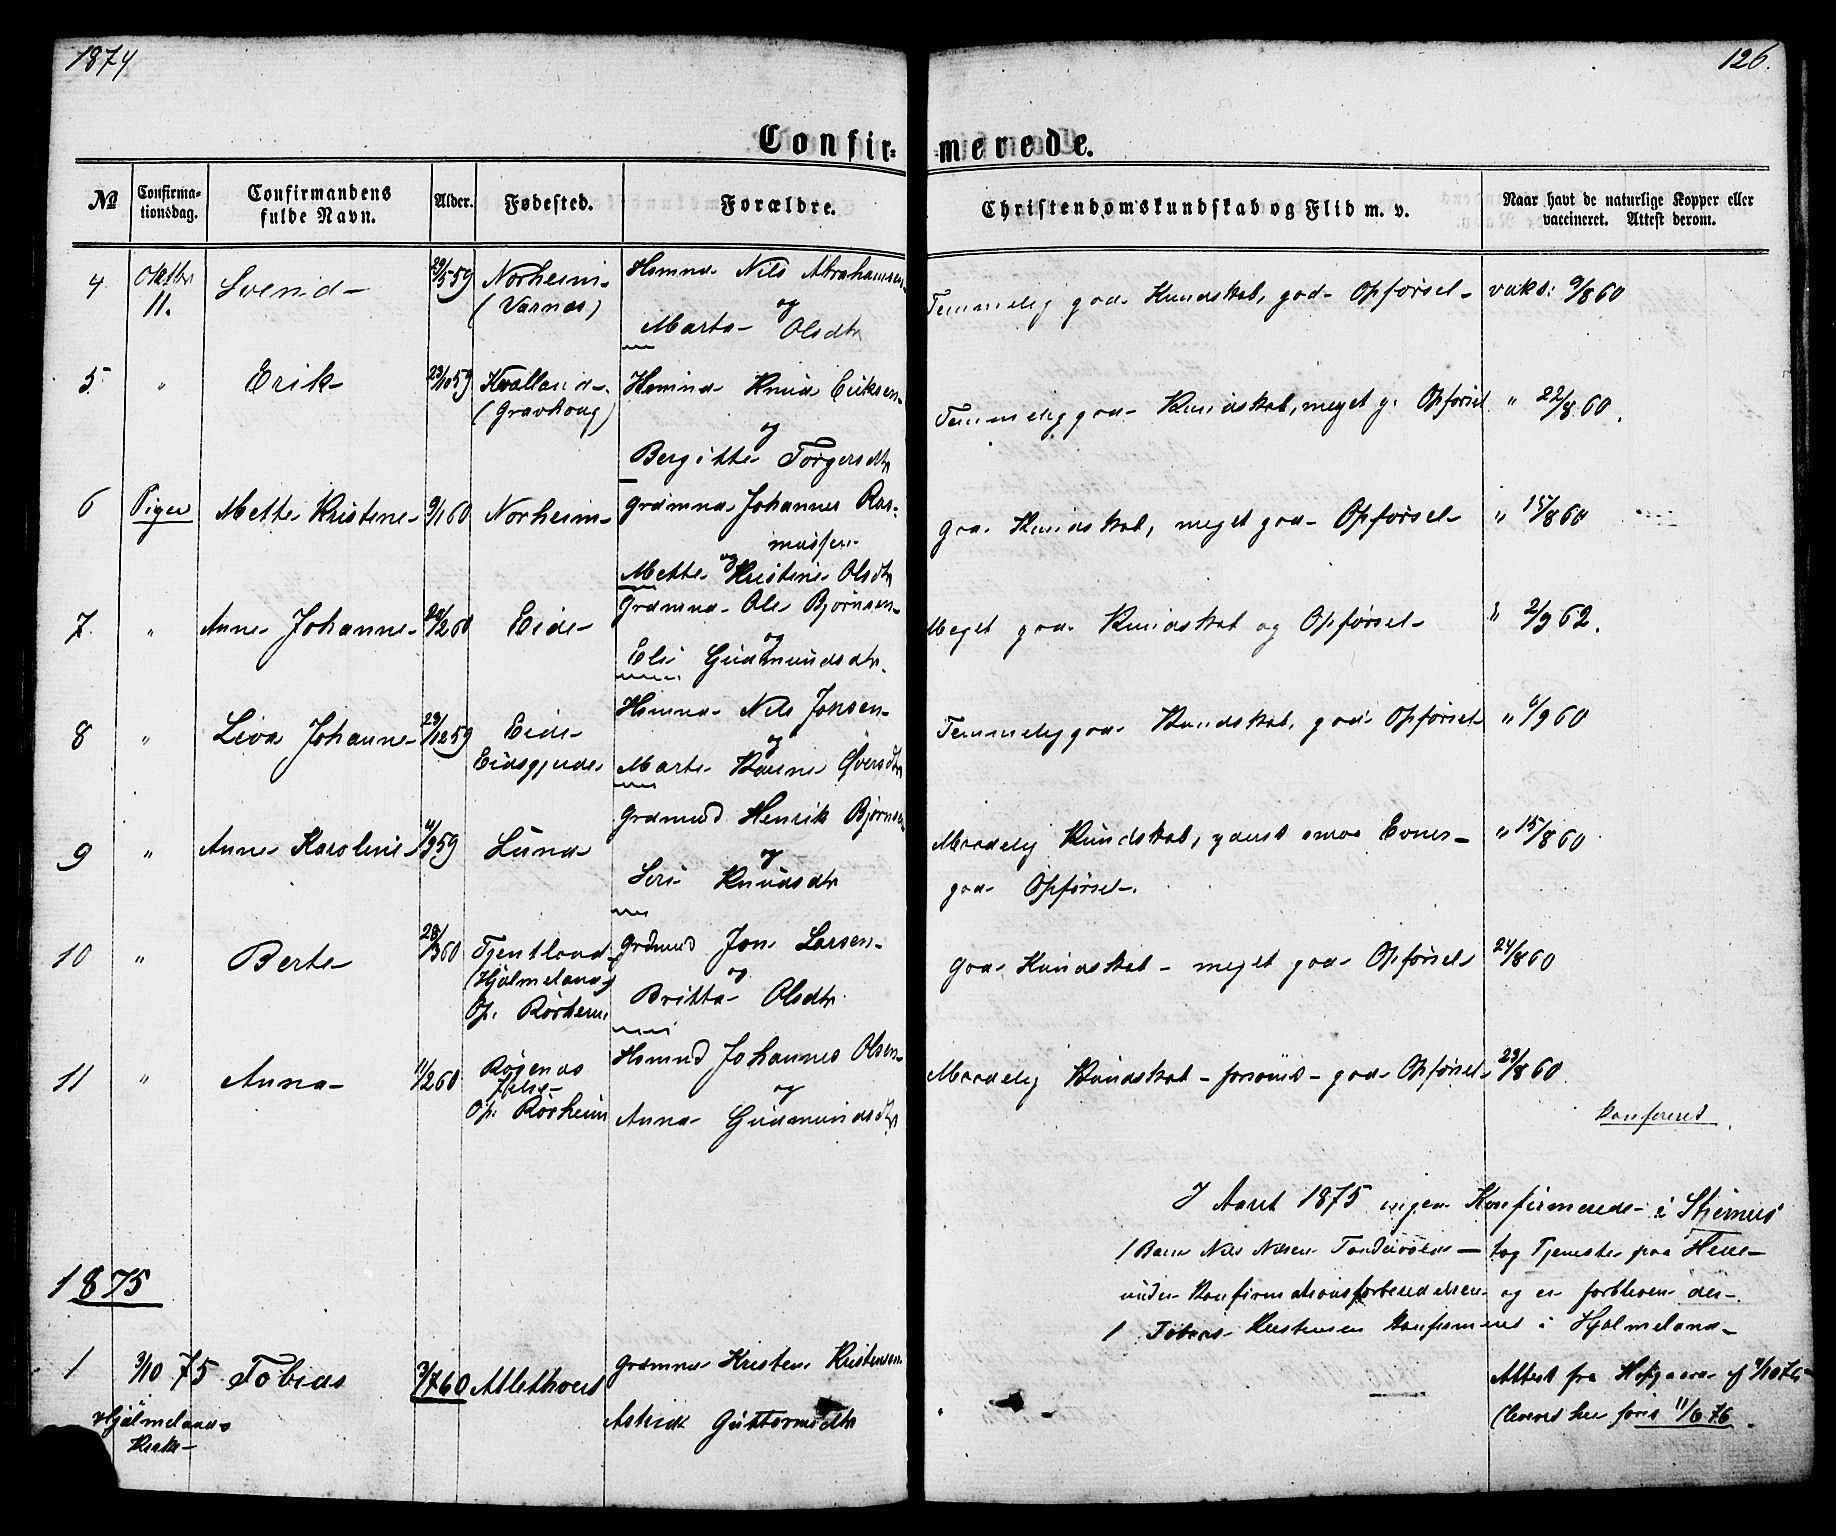 1874
126.
Confir-
merede.
No
Confirma-
tionsdag.
Confirmandens
fulde Navn.
Alder.
Fødested.
Forældre.
Christendomskundskab og Flid m. v.
Naar havt de naturlige Kopper eller
vaccineret. Attest derom.
4
11.
Svend
Norheim
(Varnæs)
Nils Abrahamsen
og
Marta Olsdtr
Temmelig god Kundskab, god Opførsel
vaks: 9/8 60
5
"
Erik
23/10 59
Kvalland
(Gravhoug)
Knud Eriksen
og
Bergitte Torgersdtr
Temmelig god Kundskab, meget g. Opførsel
" 22/8 60.
6
Piger
Mette Kristine
9/1 60
Norheim
Grdmnd Johannes Ras-
mussen
og
Mette Kristine Olsdtr
god Kundskab, meget god Opførsel
" 15/8 60
7.
"
Anne Johanne
Eide
Grdmnd Ole Bjørnsen
og
Eli Gudmundsdtr.
Meget god Kundskab og Opførsel
2/9 62.
8
"
Johanne
Eide
Nils Jonsen
og
Marte
Temmelig god Kundskab, god Opførsel
" 6/9 60
9
"
Anne Karoline
Lund
Grdmnd Henrik Bjørnsen
og
Siri Knudsdtr
Maadelig Kundskab, smaa Evner
god Opførsel.
" 15/8 60
10
"
Berte
28/3 60
Tjentland
(Hjelmeland)
Op. Rørheim
Grdmnd Jon Larsen
og
Britta Olsdtr
god Kundskab meget god Opførsel
24/8 60
11
"
Anna
11/2 60
Jelse
Op. Rørheim
Johannes Olsen
og
Anna Gudmundsdtr
Maadelig Kundskab god Opførsel
29/8 60
konfereret
I Aaret 1875 ingen Konfirmerede i
1 Barn Nils Nilsen tog Tjeneste paa
under Konfirmationsforberedelsen og er forbleven der.
1 Tobias Kristensen konfirmeret i Hjelmeland
1875
1
3/10 75
Hjelmelands
Kirke
Tobias
3/7 60
Atlethveit
Grdmnd Kristen Kristensen
Astrid Guttormsdtr
Attest fra
leveret 11/6 76.